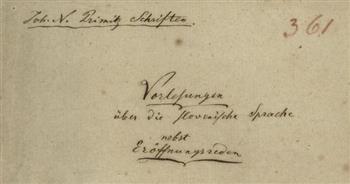 Joh. N. Primitz Schriften.
361
Vorlesungen
über die slovenische Sprache
nebst
Eröffnungsreden